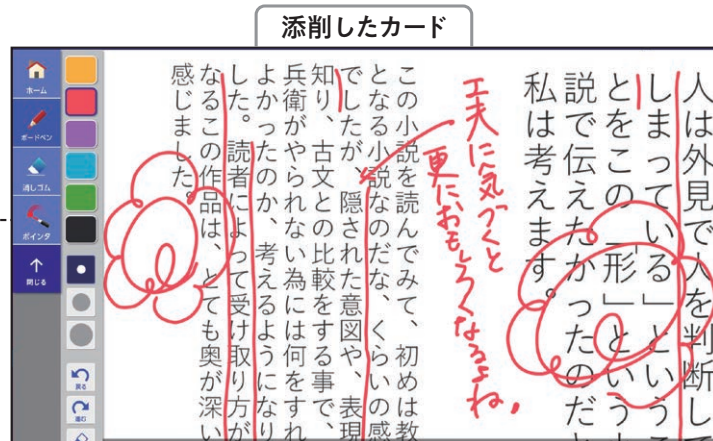 添削したカード
ホーム
ボードペン
消しゴム
ポインタ
閉じる
戻る
進む
人は外見で人を判断して
しまっている」というこ
とをこの「形」という小
説で伝えたかったのだと
私は考えます。
工夫に気づくと
更におもしろくなるよね。
この小説を読んでみて、初めは教
となる小説なのだな、くらいの感
でしたが、隠された意図や、表現
知り、古文との比較をする事で、
兵衛がやられない為には何をすれ
よかったのか、考えるようになり
した。読者によって受け取り方が
なるこの作品は、とても奥が深い
感じました。